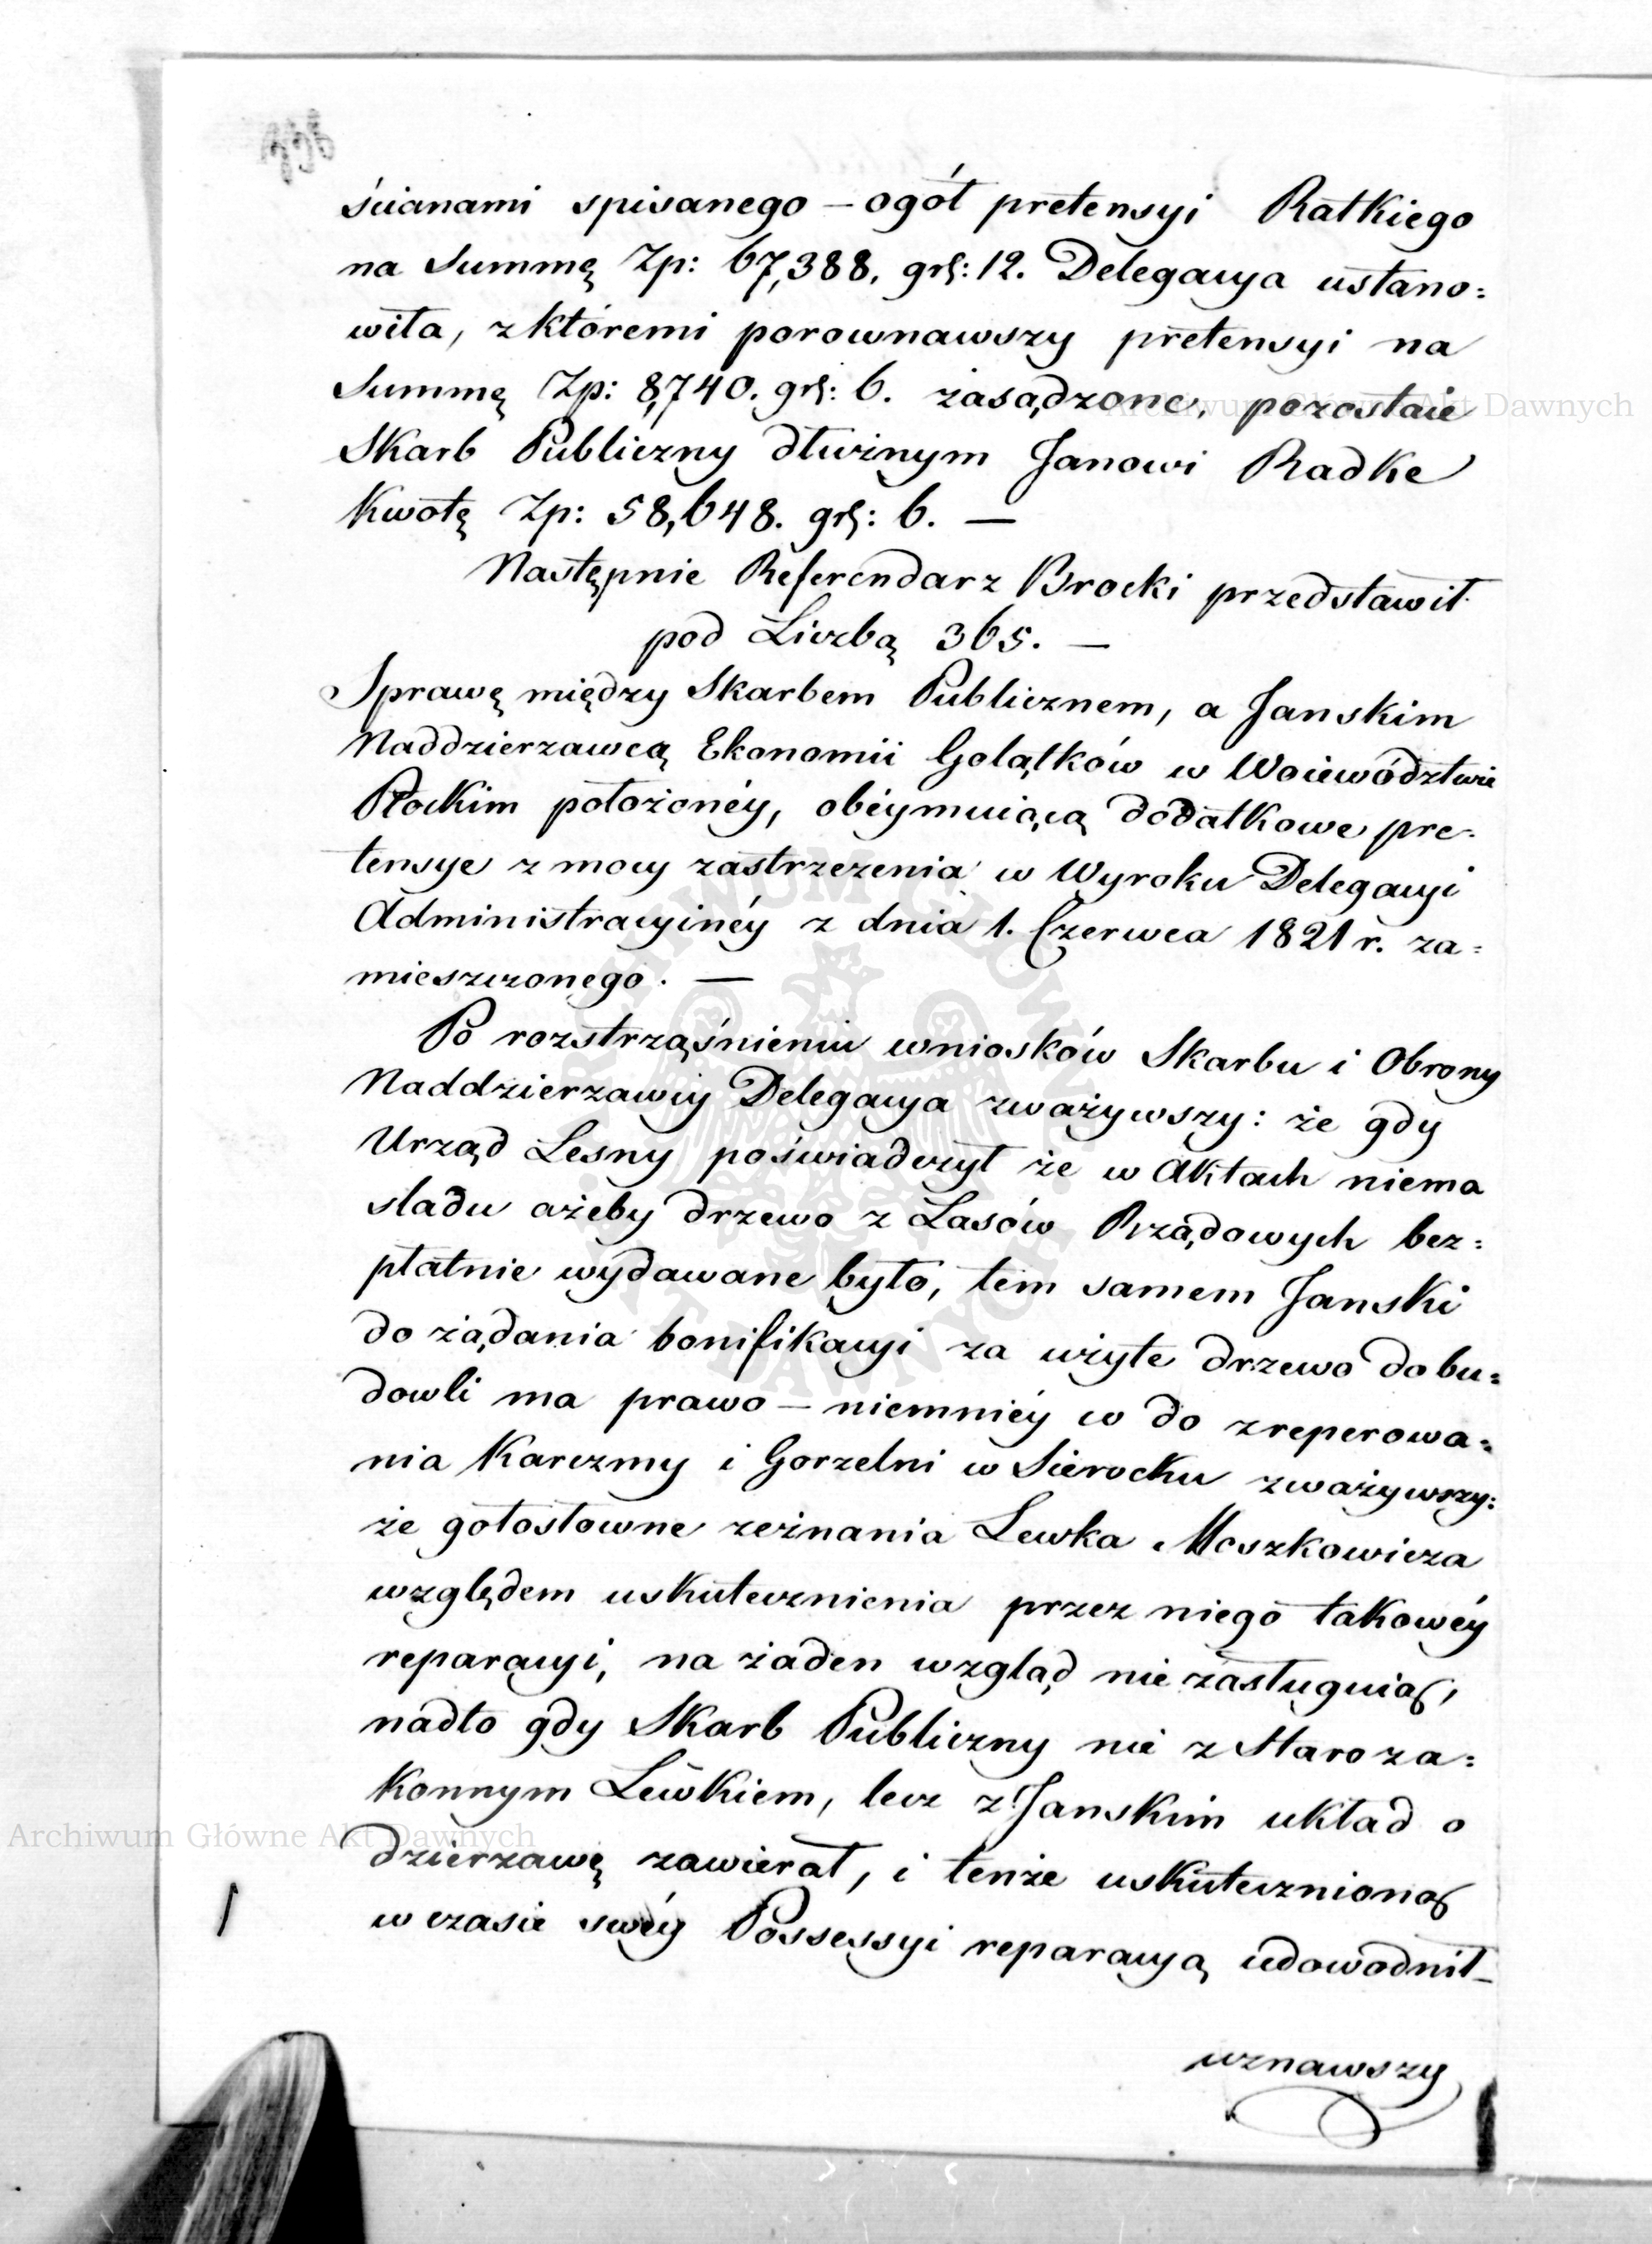 ścianami spisanego – ogół pretensyi Ratkiego
na Summę Zp: 67,388. gr: 12. Delegacya ustano=
wiła, z któremi porownawszy pretensyi na
Summę Zp: 8,740. gr: 6. zasądzone, pozostaie
Skarb Publiczny dłużnym Janowi Radke
Kwotę Zp: 58,648. gr: 6. —
Następnie Referendarz Brocki przedstawił
pod Liczbą 365. —
Sprawę między Skarbem Publicznem, a Janskim
Naddzierzawcą Ekonomii Golątków w Woiewództwie
Płockim położonéy, obéymuiącą dodatkowe pre=
tensye z mocy zastrzezenia w Wyroku Delegacyi
Administracyinéy z dnia 1. Czerwca 1821 r. za=
mieszczonego. —
Po rozstrząśnieniu wniosków Skarbu i Obrony
Naddzierzawcy Delegacya zważywszy: że gdy
Urząd Lesny poświadczył że w Aktach niema
sladu ażeby drzewo z Lasów Rządowych bez=
płatnie wydawane było, tém samem Janski
do żądania bonifikacyi za użyte drzewo do bu=
dowli ma prawo – niemniéy co do zreperowa=
nia Karczmy i Gorzelni w Sierocku zważywszy:
że gołosłowne zeznania Lewka Moszkowicza
względem uskutecznienia przez niego takowéy
reparacyi, na żaden wzgląd nie zasługuią,
nadto gdy Skarb Publiczny nie z Staroza=
konnym Lewkiem, lecz z Janskim układ o
dzierzawę zawierał, i tenże uskutecznioną
w czasie swéy Possessyi reparacyą udowodnił –
uznawszy
Archiwum Główne Akt Dawnych
Archiwum Główne Akt Dawnych
ARCHIWUM GŁÓWNE AKT DAWNYCH